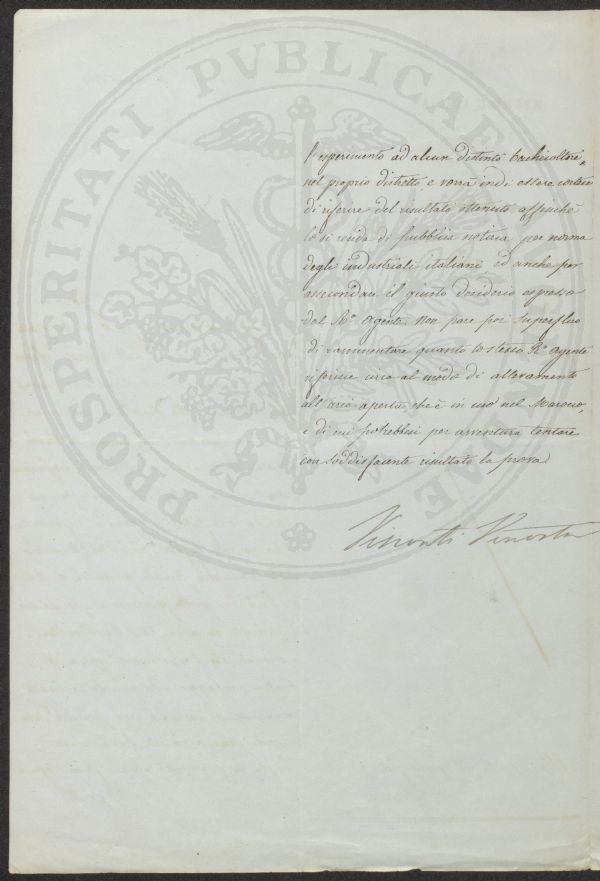 PROSPERITATI PVBLICAE
l'esperimento ad alcun distinto bachicoltore
nel proprio distretto e vorrà indi essere cortese
di riferire del risultato ottenuto, affinchè
lo si renda di pubblica notizia per norma
degli industriali italiani, ed anche per
assecondare il giusto desiderio espresso
dal R.º Agente. Non pare poi superfluo
di rammentare quanto lo stesso R.º Agente
riferisce circa al modo di allevamento
all'aria aperta, che è in uso nel Marocco,
e di cui potrebbesi per avventura tentare
con soddisfacente risultato la prova.
Visconti Venosta